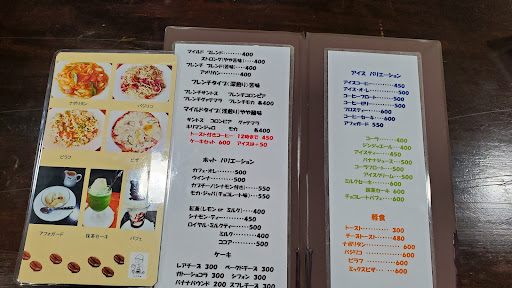 ナポリタン
バジリコ
ピラフ
ピザ
アフォガード
抹茶セーキ
パフェ
マイルド ブレンド………400
ストロング(やや苦味)…400
フレンチ ブレンド(苦味)…400
アメリカン………400
フレンチタイプ(深煎り)苦味
フレンチサントス フレンチコロンビア
フレンチグァテマラ フレンチモカ 各400
マイルドタイプ(浅煎り)やや酸味
サントス コロンビア グァテマラ
キリマンジャロ モカ 各400
トースト付きコーヒー 12時まで 450
ケーキセット 600 アイスは+50
ホット バリエーション
カフェ・オレ………500
ウインナ………500
カプチーノ(シナモン付き)………550
モカ・ジャバ(チョコレート味)…550
紅茶(レモン or ミルク)…400
シナモン・ティー………450
ロイヤル・ミルクティー………500
ミルク………400
ココア………500
ケーキ
レアチーズ 300 ベークドチーズ 300
ガトーショコラ 300 シフォン 300
バナナパウンド 200 スフレチーズ 300
アイス バリエーション
アイスコーヒー………450
アイス・オ・レ………500
コーヒーフロート………500
コーヒーゼリー………500
フロスティー………600
コーヒーセーキ………600
アフォガード 550
コーラ………400
ジンジャエール………400
アイスティー………450
バナナジュース………500
コーラフロート………500
アイスクリーム………500
ミルクセーキ………600
抹茶セーキ………600
チョコレートパフェ………600
軽食
トースト………300
チーズトースト………480
ナポリタン………600
バジリコ………600
ピラフ………600
ミックスピザ………600